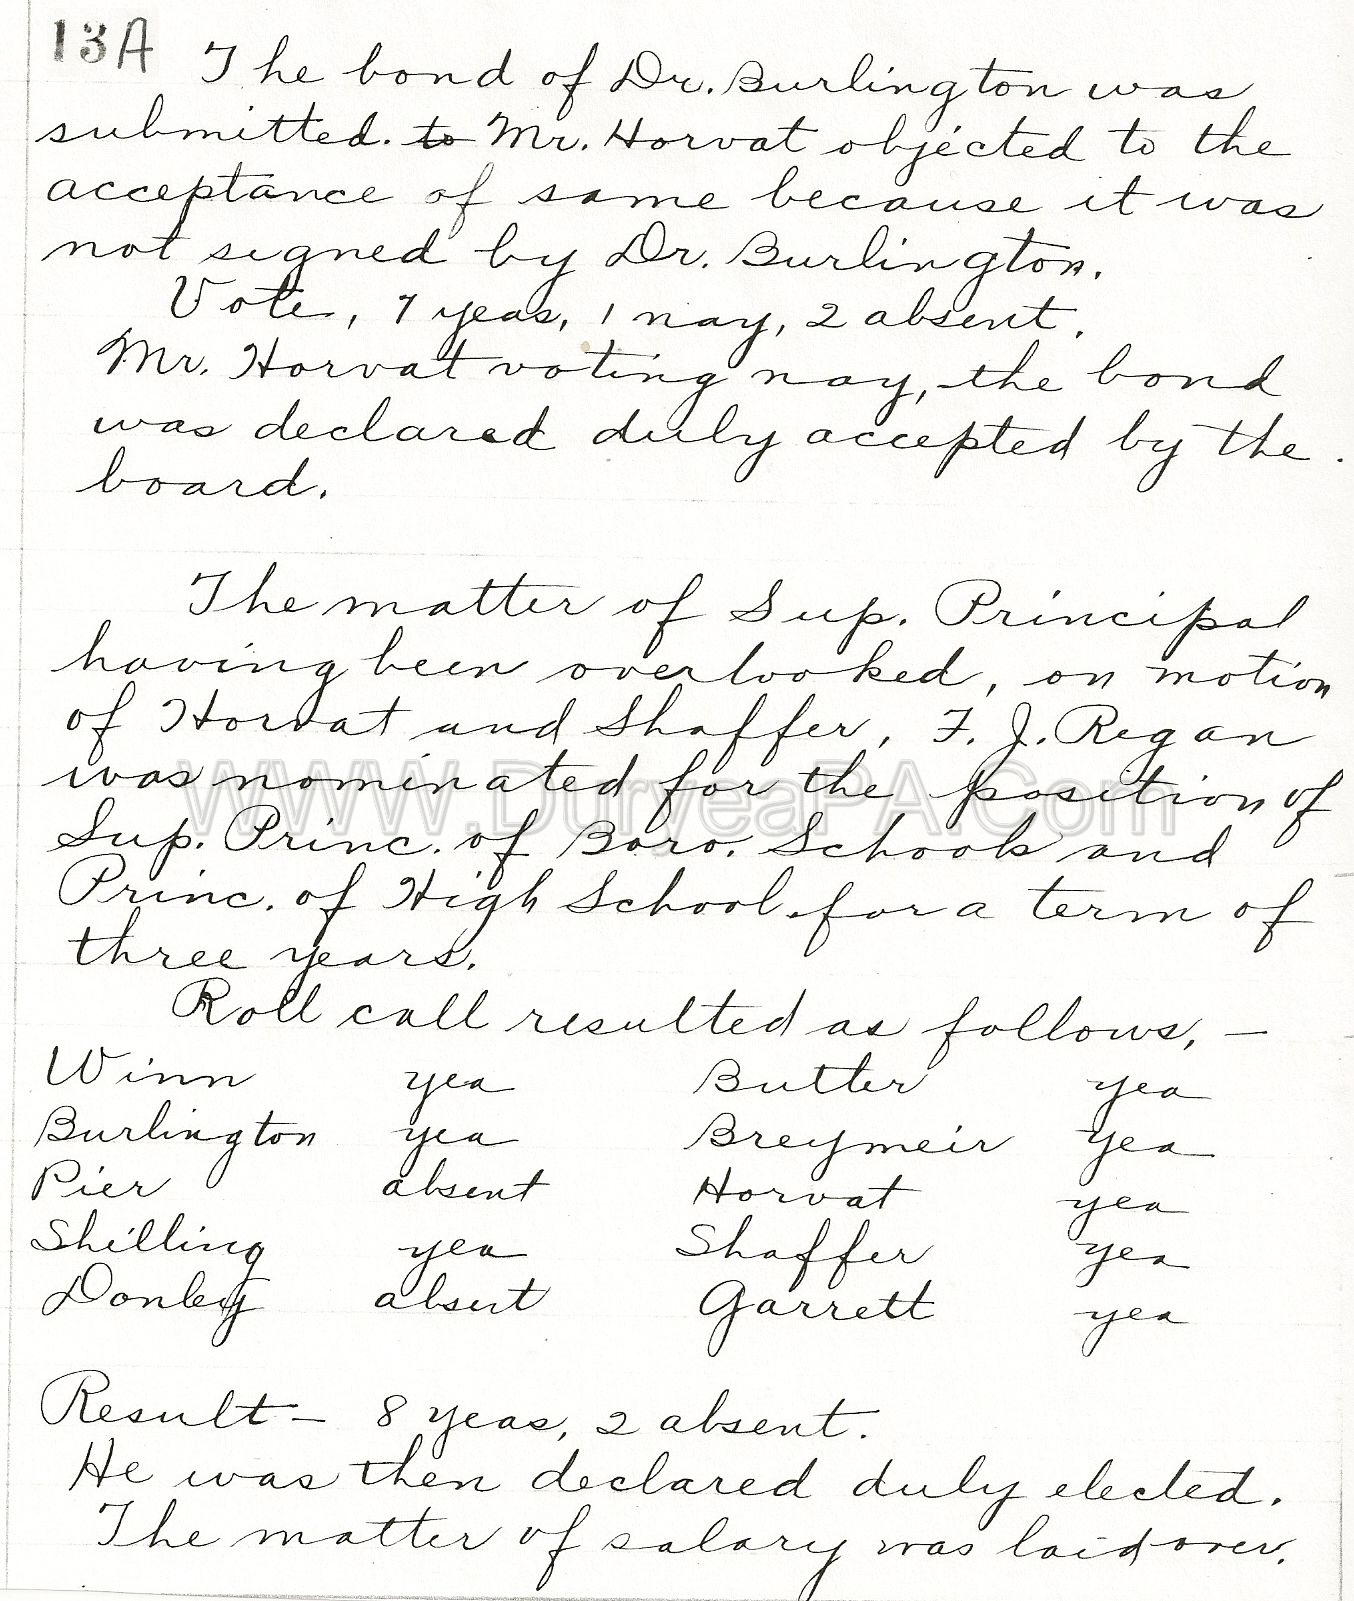 13A
The bond of Dr. Burlington was
submitted. to Mr. Horvat objected to the
acceptance of same because it was
not signed by Dr. Burlington.
Vote, 7 yeas, 1 nay, 2 absent.
Mr. Horvat voting nay, the bond
was declared duly accepted by the
board.
The matter of Sup. Principal
having been overlooked, on motion
of Horvat and Shaffer, F. J. Regan
was nominated for the position of
WWW.DuryeaPA.Com
Sup. Princ. of Boro. Schools and
Princ. of High School for a term of
three years.
Roll call resulted as follows, —
Winn yea Butter yea
Burlington yea Breymeir yea
Pier absent Horvat yea
Shilling yea Shaffer yea
Donley absent Garrett yea
Result — 8 yeas, 2 absent.
He was then declared duly elected.
The matter of salary was laid over.